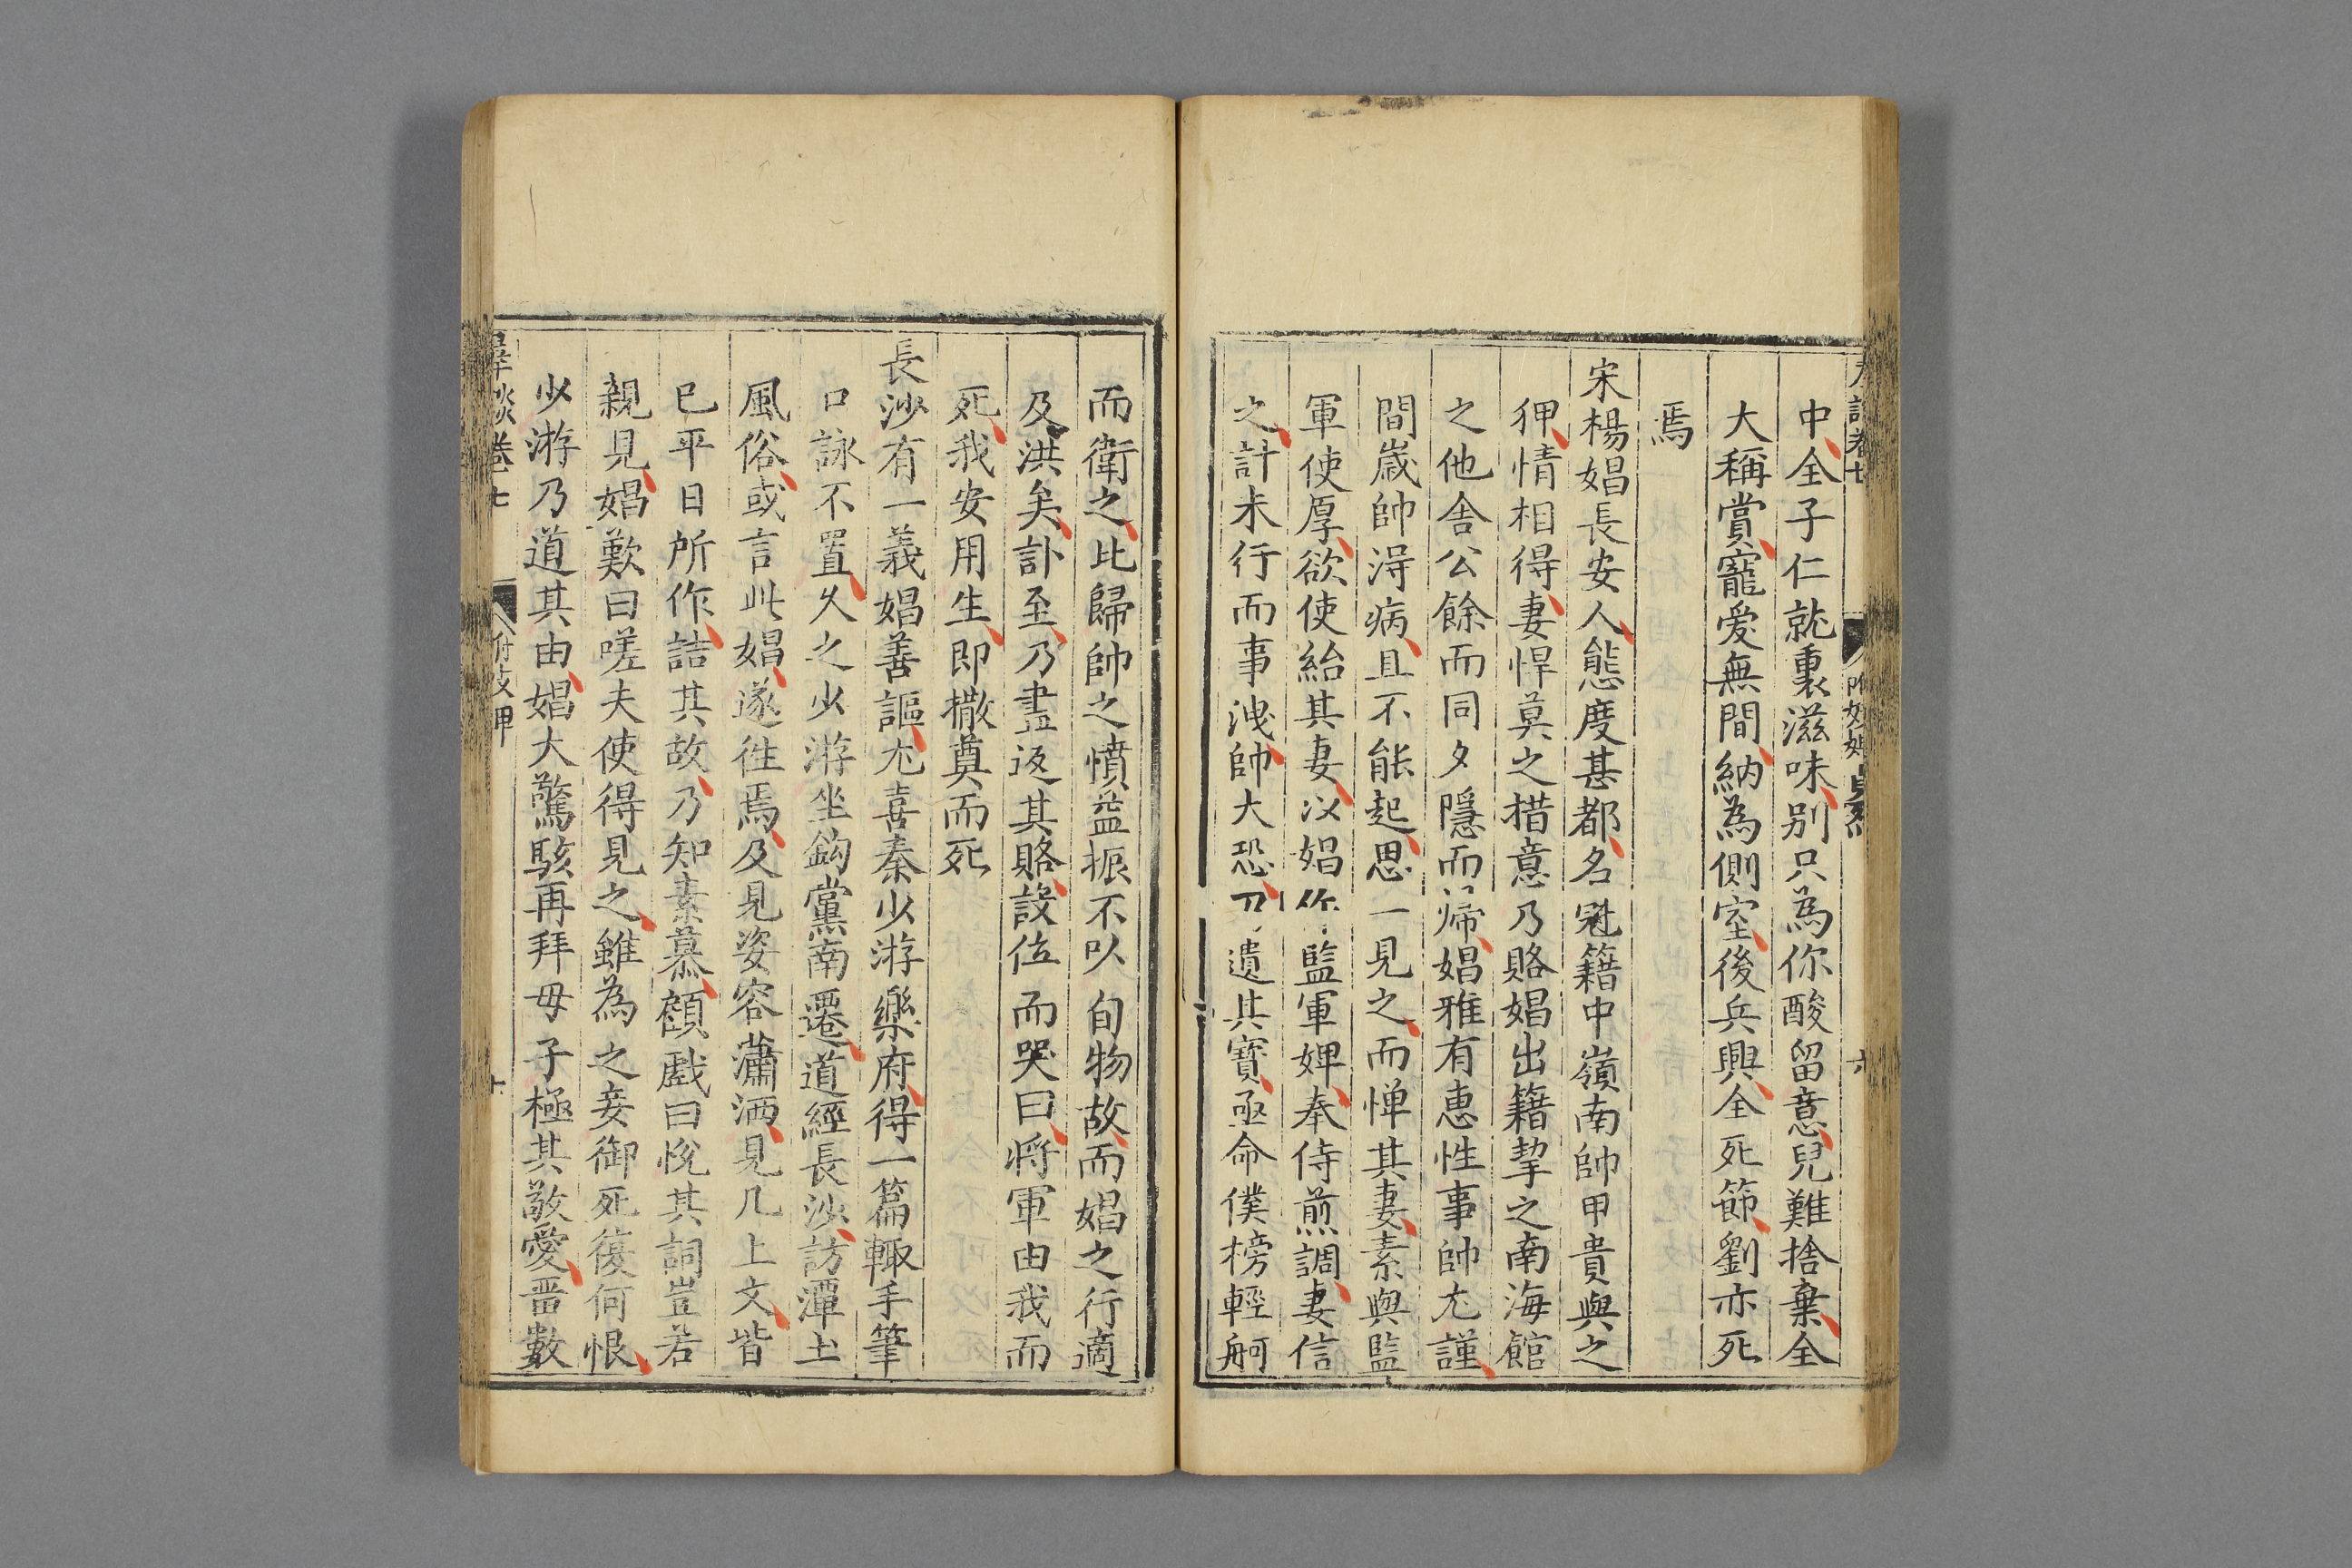 中全子仁就裏滋味別只為你酸留意兒難捨棄全
大稱賞寵愛無間納為側室後兵興全死節劉亦死
焉
宋楊娼長安人態度甚都名冠籍中嶺南帥甲貴與之
狎情相得妻悍莫之措意乃賂娼出籍挈之南海館
之他舍公餘而同夕隱而歸娼雅有惠性事帥尤謹
間歲帥得病且不能起思一見之而憚其妻素與監
軍使厚欲使紿其妻以娼作監軍婢奉侍煎調妻信
之計未行而事洩帥大恐乃遺其寶亟命僕榜輕舸
而衛之比歸帥之憤益振不以旬物故而娼之行適
及洪矣訃至乃盡返其賂設位而哭曰將軍由我而
死我安用生即撤奠而死
長沙有一義娼善謳尤喜秦少游樂府得一篇輙手筆
口詠不置乆之少游坐鈎黨南遷道經長沙訪潭土
風俗或言此娼遂徃焉及見姿容瀟洒見几上文皆
已平日所作詰其故乃知素慕顏戲曰悅其詞豈若
親見娼歎曰嗟夫使得見之雖為之妾御死復何恨
少游乃道其由娼大驚駭再拜母子極其敬愛畱數
卷七